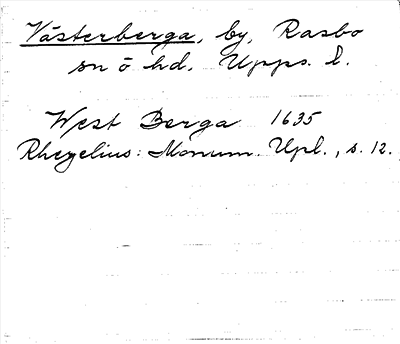 Västerberga, by, Rasbo
sn o hd. Upps. l.
West Berga 1635
Rhezelius: Monum. Upl., s. 12.